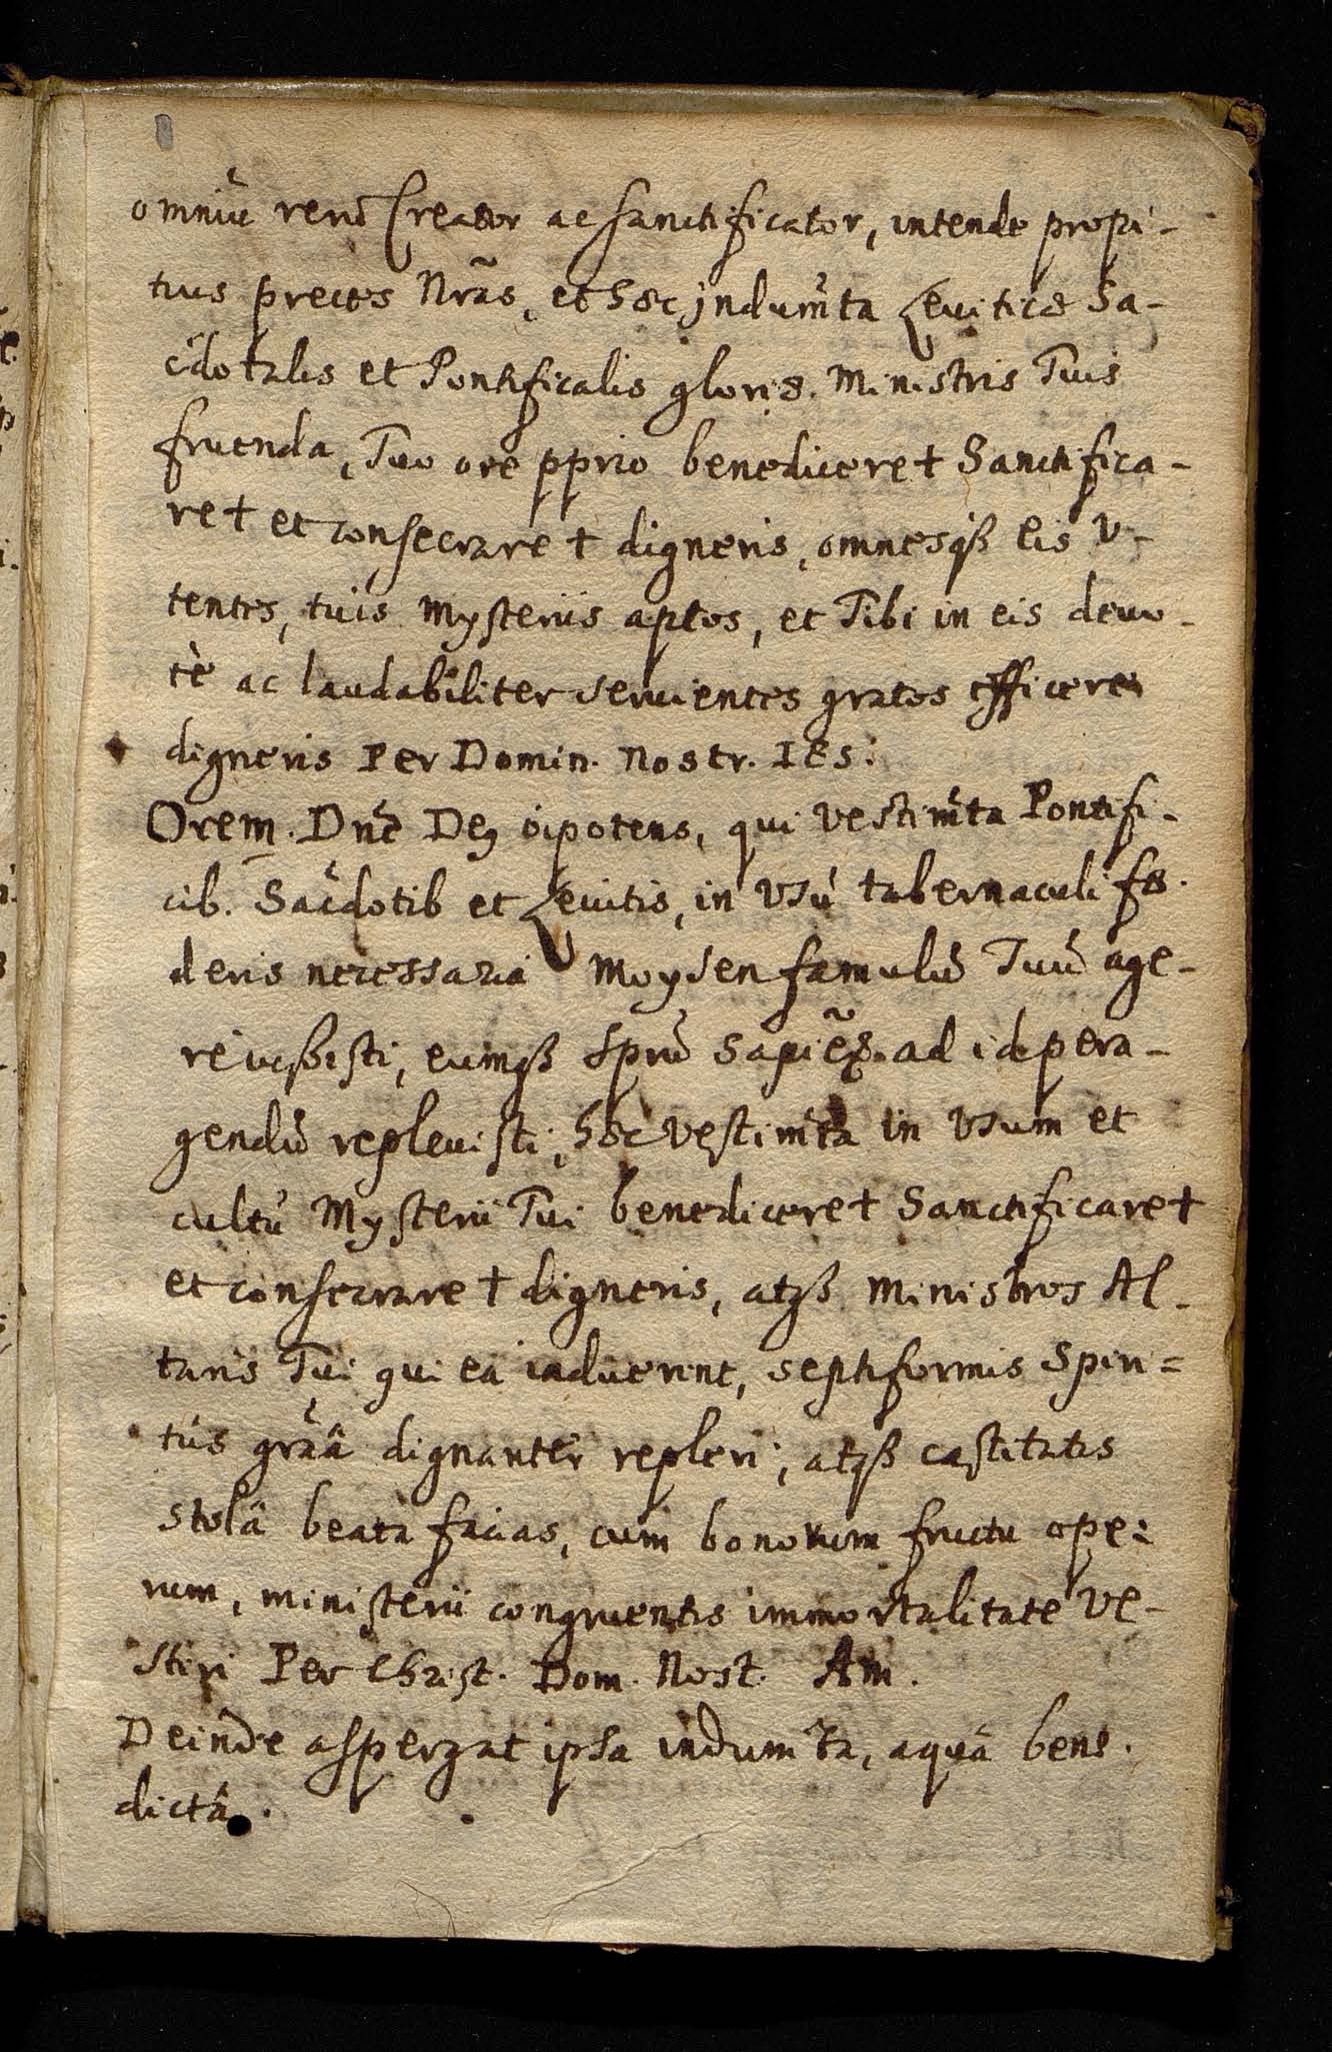 omniũ rerũ Creator ac Sanctificator, intende propi-
tius preces Nrãs, et hæc jndum̃ta Leuiticæ Sa-
c̃dotalis et Pontificalis gloriæ. Ministris Tuis
fruenda, Tuo ore pprio benedicere † Sanctifica-
re † et consecrare † digneris, omnesqß eis V-
tentes, tuis Mysteriis aptos, et Tibi in eis deuo-
tè ac laudabiliter seruientes gratos efficere
digneris Per Domin. Nostr. IES:
Orem. Dnẽ Deꝯ õipotens, qui Vestim̃ta Pontifi-
cib. Sac̃dotib et Leuitis, in Vsũ tabernaculi fæ-
deris necessaria Moysen famulũ Tuũ age-
re iußisti, eumqß Spũ Sapiẽæ. ad id pera-
gendũ repleuisti, hæc Vestim̃ta in Vsum et
cultũ Mysterii Tui benedicere † Sanctificare †
et consecrare † digneris, atqß Ministros Al-
taris Tui qui ea induerint, septiformis Spiri=
tús grãâ dignanter repleri; atqß castitatis
stolâ beata facias, cum bonorum fructu ope:
rum, ministerii congruentis immortalitate Ve-
stiri Per Christ. Dom. Nost. Am.
Deinde aspergat ipsa indum̃ta, aquâ bene.
dictâ.